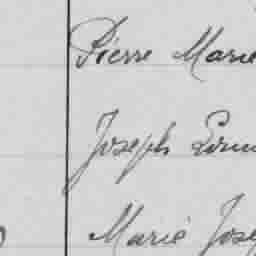 Pierre Marie
Joseph
Marie Jose